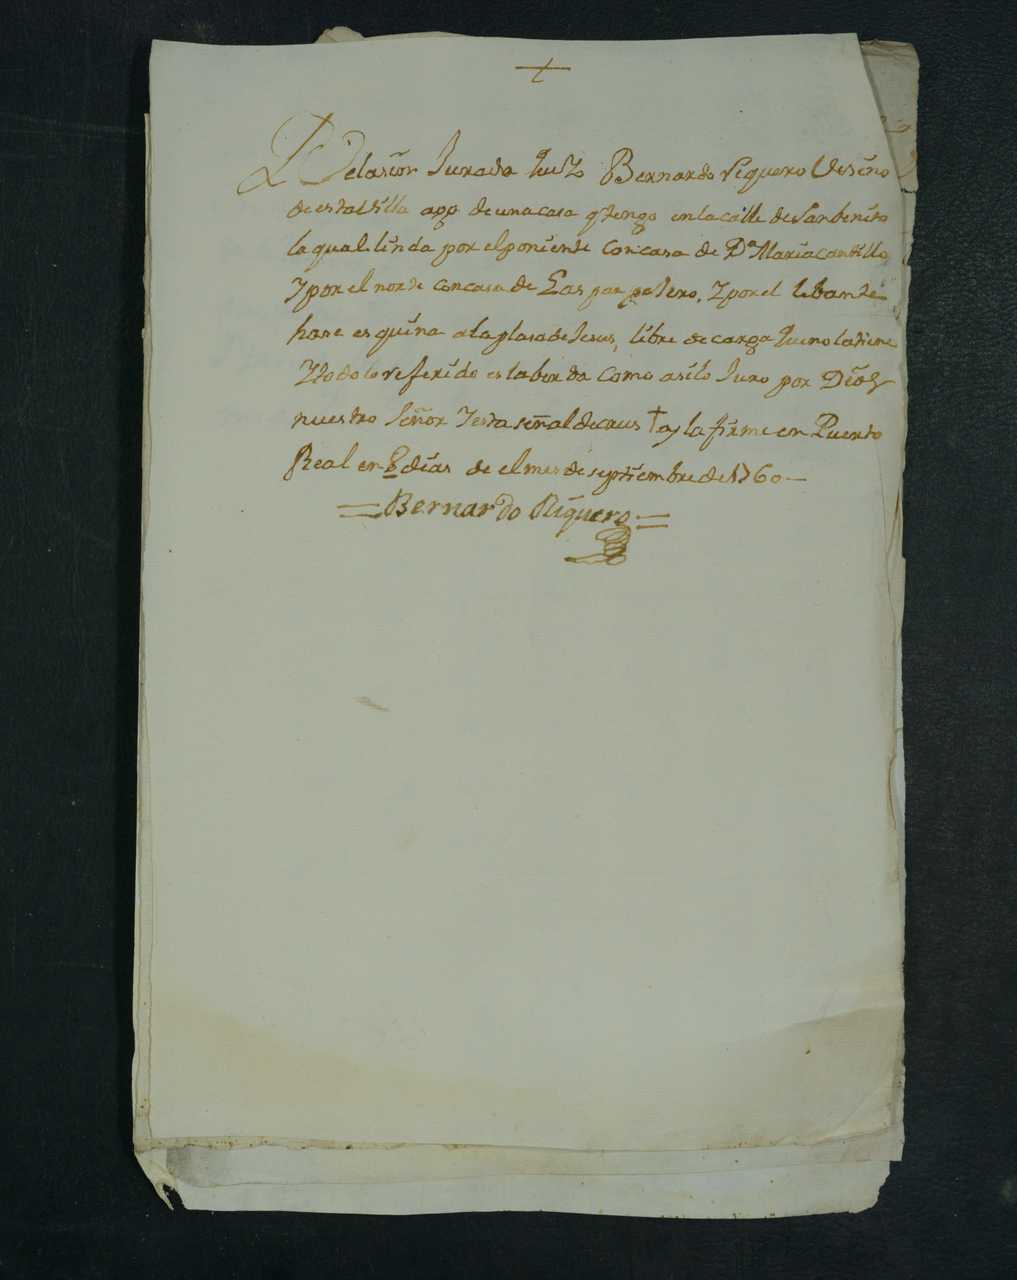 +
Relasion Jurada que Yo Bernardo riquero Vesino
de esta Villa app de una casa q tengo en la calle de San benito
la qual linda por el poniente con casa de Dª Maria cantillo
Y por el norte con casa de Gaspar Y por el lebante
hase esquina a la plasa de Jesus, libre de carga que no la tiene
Y todo lo referido es la berda como asi lo Juro por Dios
nuestro Señor Y esta señal de crus † y la firme en Puerto
Real en 8 dias de el mes de septiembre de 1760—
=Bernardo Riquero=